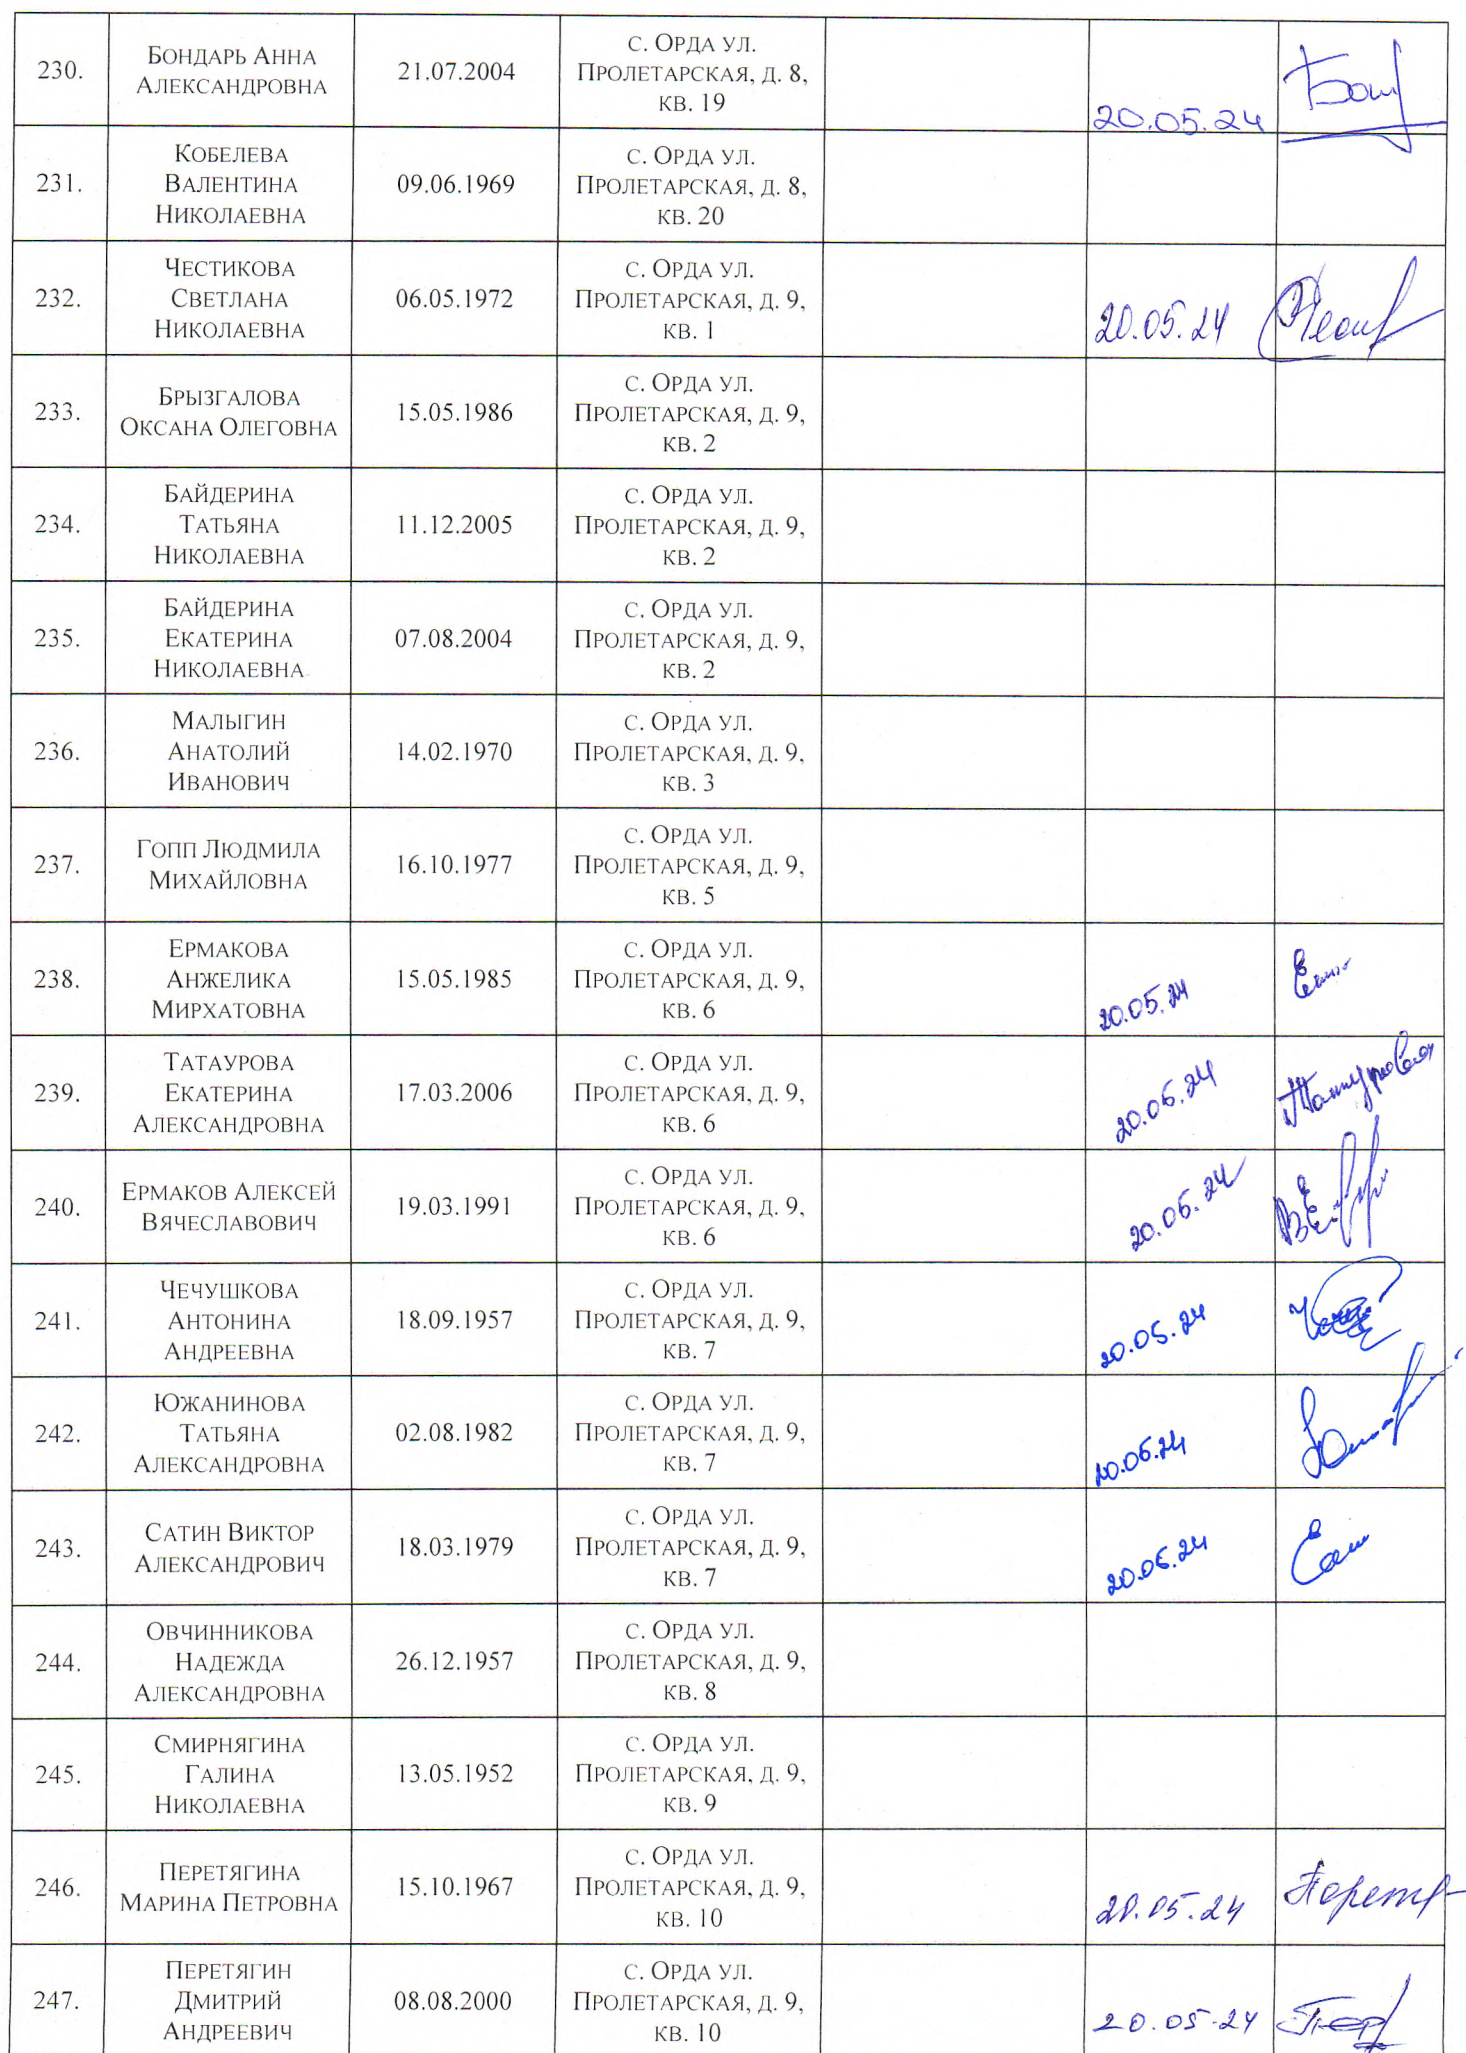 230.
Бондарь Анна
Александровна
21.07.2004
с. Орда ул.
Пролетарская, д. 8,
кв. 19
20.05.24
231.
Кобелева
Валентина
Николаевна
09.06.1969
с. Орда ул.
Пролетарская, д. 8,
кв. 20
232.
Честикова
Светлана
Николаевна
06.05.1972
с. Орда ул.
Пролетарская, д. 9,
кв. 1
20.05.24
233.
Брызгалова
Оксана Олеговна
15.05.1986
с. Орда ул.
Пролетарская, д. 9,
кв. 2
234.
Байдерина
Татьяна
Николаевна
11.12.2005
с. Орда ул.
Пролетарская, д. 9,
кв. 2
235.
Байдерина
Екатерина
Николаевна
07.08.2004
с. Орда ул.
Пролетарская, д. 9,
кв. 2
236.
Малыгин
Анатолий
Иванович
14.02.1970
с. Орда ул.
Пролетарская, д. 9,
кв. 3
237.
Гопп Людмила
Михайловна
16.10.1977
с. Орда ул.
Пролетарская, д. 9,
кв. 5
238.
Ермакова
Анжелика
Мирхатовна
15.05.1985
с. Орда ул.
Пролетарская, д. 9,
кв. 6
20.05.24
239.
Татаурова
Екатерина
Александровна
17.03.2006
с. Орда ул.
Пролетарская, д. 9,
кв. 6
20.05.24
240.
Ермаков Алексей
Вячеславович
19.03.1991
с. Орда ул.
Пролетарская, д. 9,
кв. 6
20.05.24
241.
Чечушкова
Антонина
Андреевна
18.09.1957
с. Орда ул.
Пролетарская, д. 9,
кв. 7
20.05.24
242.
Южанинова
Татьяна
Александровна
02.08.1982
с. Орда ул.
Пролетарская, д. 9,
кв. 7
20.05.24
243.
Сатин Виктор
Александрович
18.03.1979
с. Орда ул.
Пролетарская, д. 9,
кв. 7
20.05.24
244.
Овчинникова
Надежда
Александровна
26.12.1957
с. Орда ул.
Пролетарская, д. 9,
кв. 8
245.
Смирнягина
Галина
Николаевна
13.05.1952
с. Орда ул.
Пролетарская, д. 9,
кв. 9
246.
Перетягина
Марина Петровна
15.10.1967
с. Орда ул.
Пролетарская, д. 9,
кв. 10
20.05.24
247.
Перетягин
Дмитрий
Андреевич
08.08.2000
с. Орда ул.
Пролетарская, д. 9,
кв. 10
20.05.24